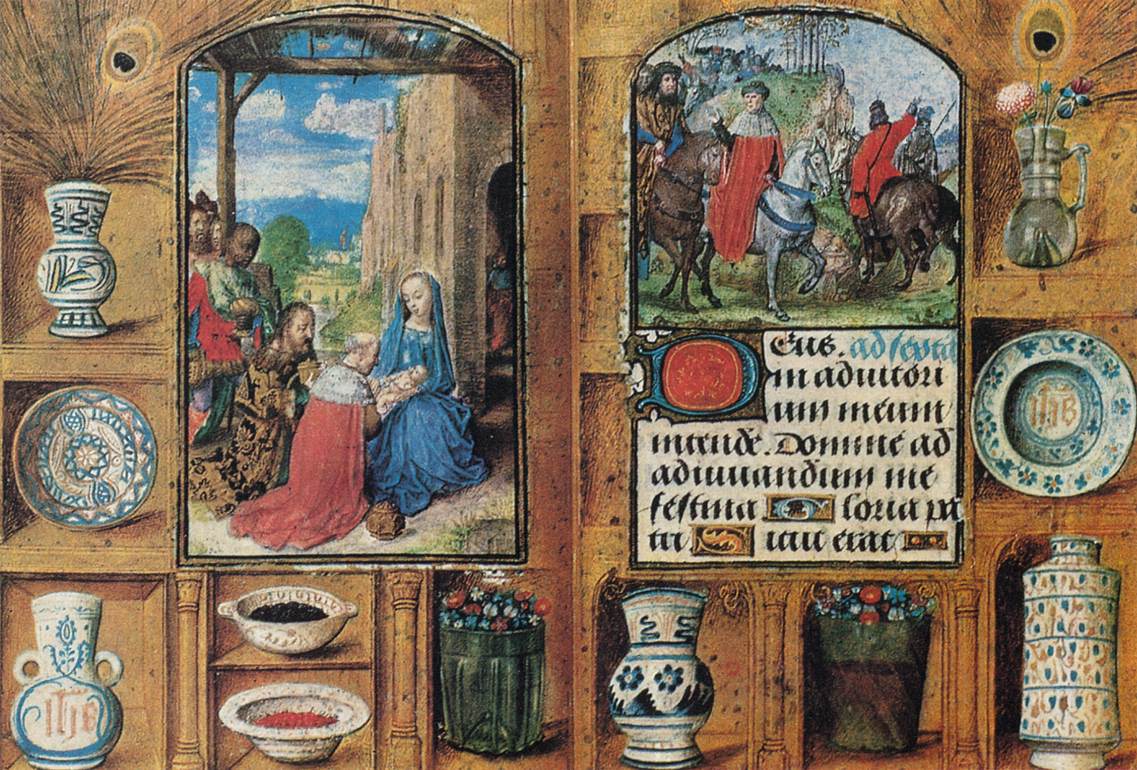 Deus. ad sexta
in adiutori
um meum
intende. Domine ad
adiuuandum me
festina Gloria pa
tri Sicut erat
IHS
IHS